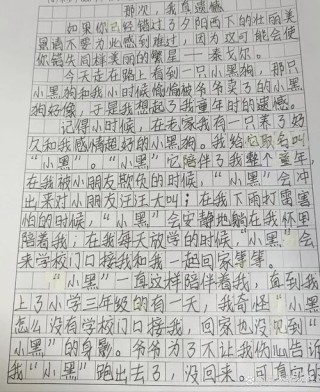 那次，我真遗憾
如果你已经错过了夕阳西下的壮丽美
景请不要为此感到难过，因为这可能会使
你错失同样美丽的繁星——泰戈尔。
今天走在路上看到一只小黑狗，那只
小黑狗和我小时候偷偷被爷爷卖了的小黑
狗好像，于是我想起了我童年时的遗憾。
记得小时候，在老家我有一只养了好
久和我感情超好的小黑狗。我给它取名叫
“小黑”。“小黑”它陪伴了我整个童年，
在我被小朋友欺负的时候，“小黑”会冲
出来对小朋友汪汪大叫；在我下雨打雷害
怕的时候，“小黑”会安静地躺在我怀里
陪着我；在我每天放学的时候，“小黑”会
来学校门口接我和我一起回家等等。
“小黑”一直这样陪伴着我，直到我
上了小学三年级的有一天，我奇怪“小黑
怎么没有学校门口接我，回家也没见到“小
小黑”的身影。爷爷为了不让我伤心告诉
我“小黑”跑出去了，没回来。可真实的